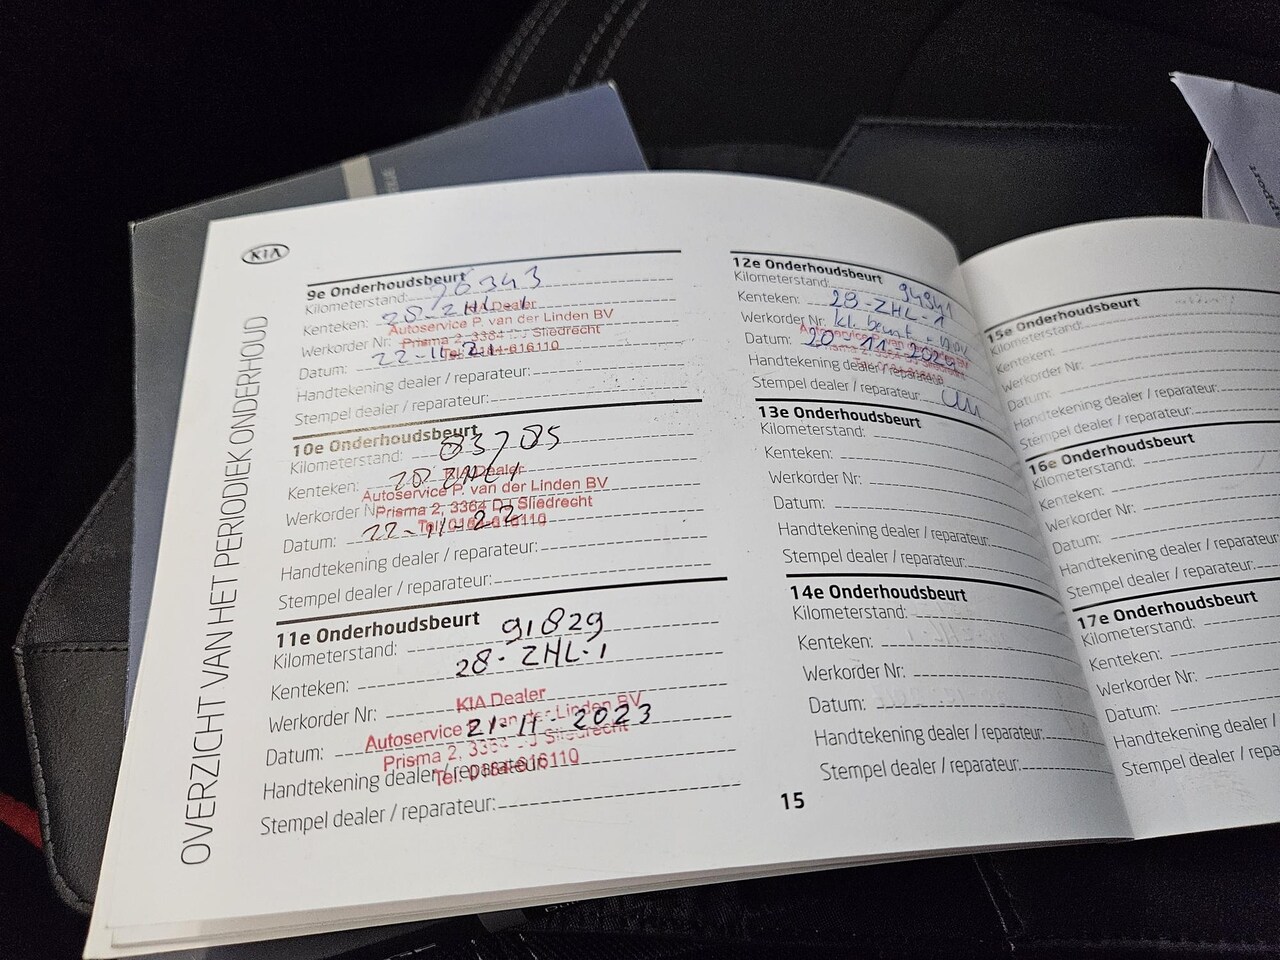 KIA
OVERZICHT VAN HET PERIODIEK ONDERHOUD
9e Onderhoudsbeurt
Kilometerstand: 76343
Kenteken: 28-ZHL-1
KIA Dealer
Autoservice P. van der Linden BV
Werkorder Nr:
Prisma 2, 3364 DJ Sliedrecht
Datum: 22-11-21
Handtekening dealer / reparateur:
Stempel dealer / reparateur:
10e Onderhoudsbeurt
Kilometerstand: 83785
Kenteken: 28 ZHL 1
KIA Dealer
Autoservice P. van der Linden BV
Werkorder Nr:
Prisma 2, 3364 DJ Sliedrecht
Datum: 22-11-22
Handtekening dealer / reparateur:
Stempel dealer / reparateur:
11e Onderhoudsbeurt
Kilometerstand: 91829
Kenteken: 28-ZHL-1
Werkorder Nr:
KIA Dealer
Autoservice P. van der Linden BV
Datum: 21-11-2023
Prisma 2, 3364 DJ Sliedrecht
Handtekening dealer / reparateur:
Stempel dealer / reparateur:
12e Onderhoudsbeurt
Kilometerstand: 94941
Kenteken: 28-ZHL-1
Werkorder Nr: kl. beurt
Datum: 20-11-2024
Handtekening dealer / reparateur:
Stempel dealer / reparateur:
13e Onderhoudsbeurt
Kilometerstand:
Kenteken:
Werkorder Nr:
Datum:
Handtekening dealer / reparateur:
Stempel dealer / reparateur:
14e Onderhoudsbeurt
Kilometerstand:
Kenteken:
Werkorder Nr:
Datum:
Handtekening dealer / reparateur:
Stempel dealer / reparateur:
15
15e Onderhoudsbeurt
Kilometerstand:
Kenteken:
Werkorder Nr:
Datum:
Handtekening dealer / reparateur:
Stempel dealer / reparateur:
16e Onderhoudsbeurt
Kilometerstand:
Kenteken:
Werkorder Nr:
Datum:
Handtekening dealer / reparateur:
Stempel dealer / reparateur:
17e Onderhoudsbeurt
Kilometerstand:
Kenteken:
Werkorder Nr:
Datum:
Handtekening dealer /
Stempel dealer / repara